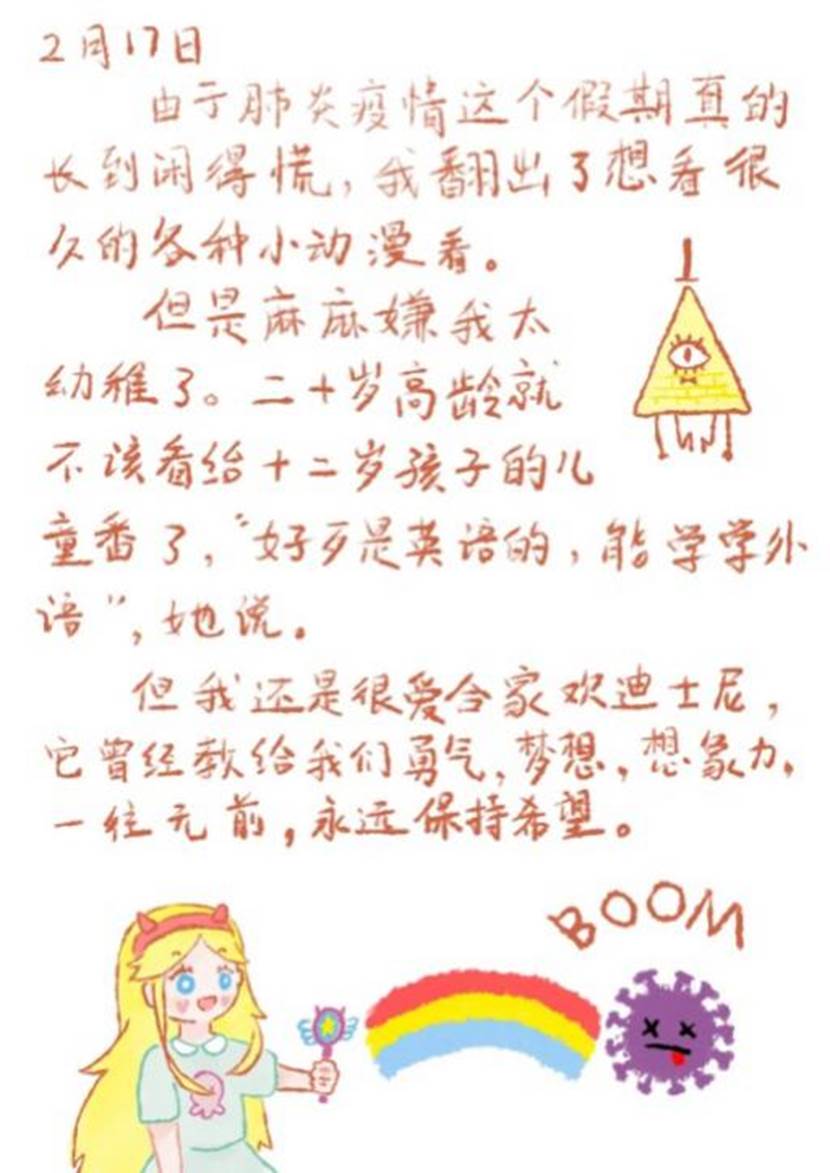 2月17日
由于肺炎疫情这个假期真的
长到闲得慌，我翻出了想看很
久的各种小动漫看。
但是麻麻嫌我太
幼稚了。二十岁高龄就
不该看给十二岁孩子的儿
童番了，“好歹是英语的，能学学外
语”，她说。
但我还是很爱合家欢迪士尼，
它曾经教给我们勇气，梦想，想象力，
一往无前，永远保持希望。
BOOM